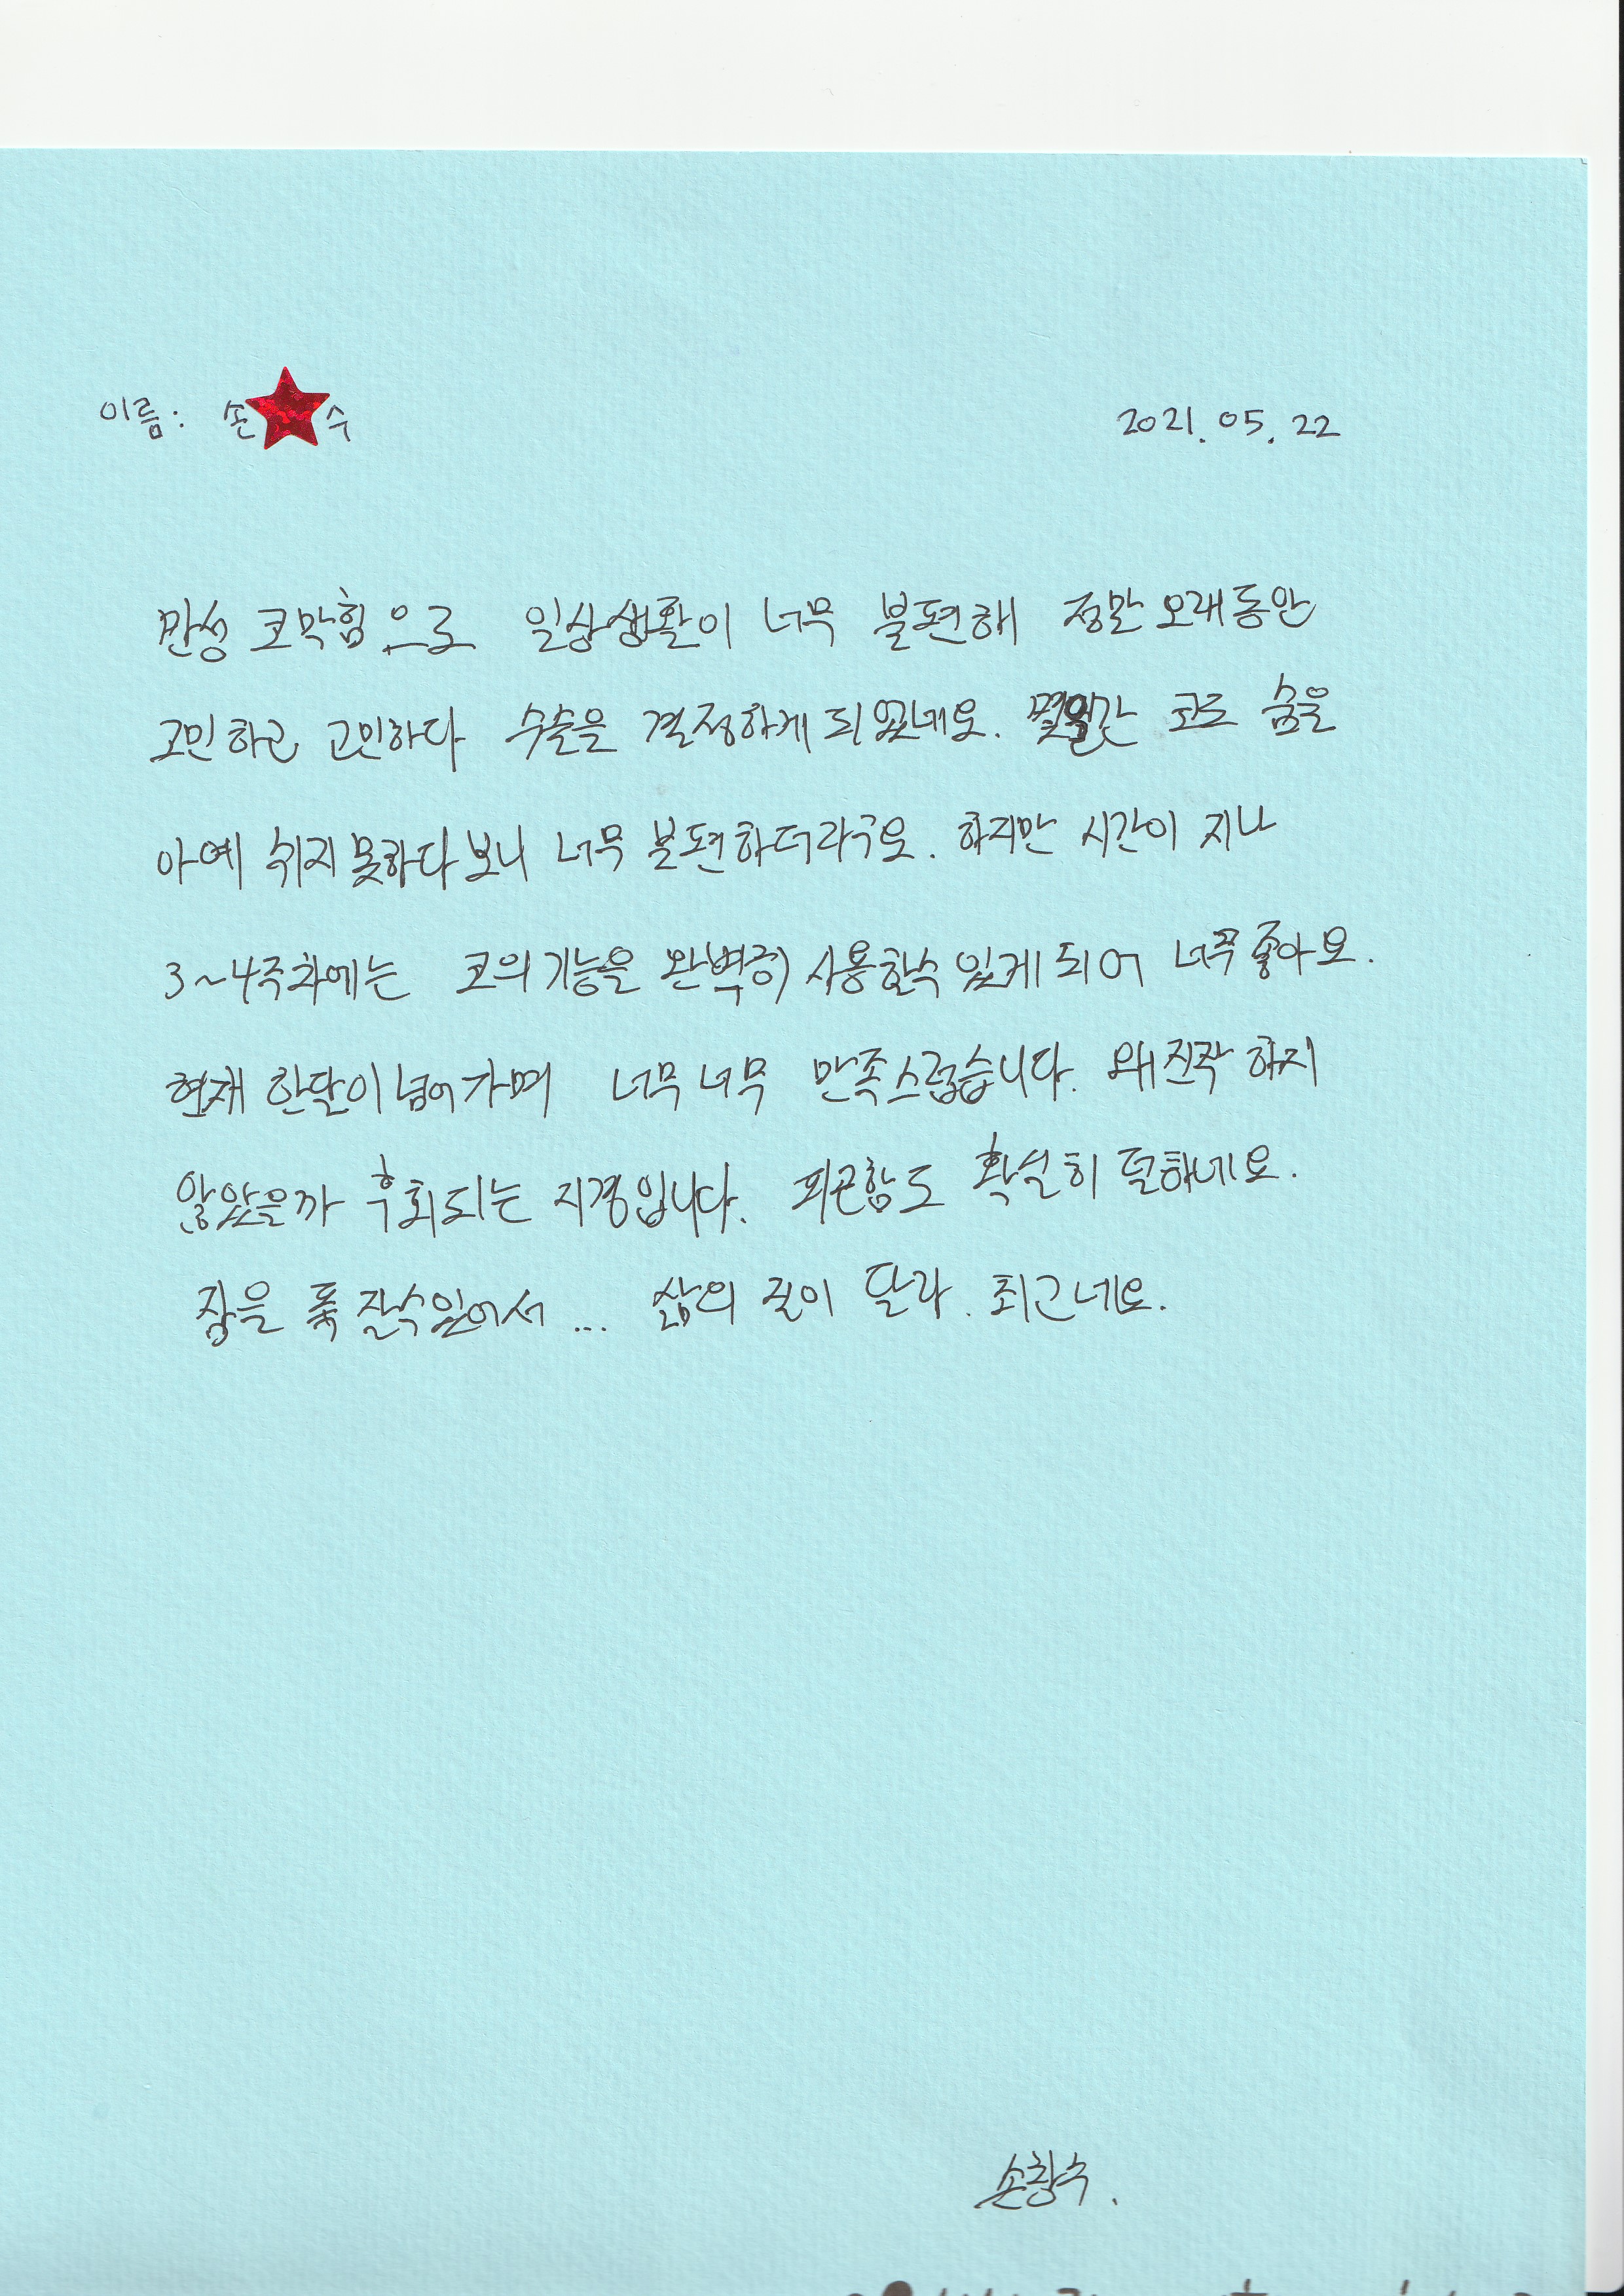 이름: 손 수
2021. 05. 22
만성 코막힘으로 일상생활이 너무 불편해 정말 오래동안
고민하고 고민하다 수술을 결정하게 되었네요. 코로 숨을
아예 쉬지 못하다 보니 너무 불편하더라구요. 하지만 시간이 지나
3~4주차에는 코의 기능을 완벽히 사용할수 있게 되어 너무 좋아요.
현재 한달이 넘어가며 너무 너무 만족스럽습니다. 왜 진작 하지
않았을까 후회되는 지경입니다. 피곤함도 확실히 덜하네요.
잠을 푹 잘수있어서 ... 삶의 질이 달라. 최고네요.
손창수.